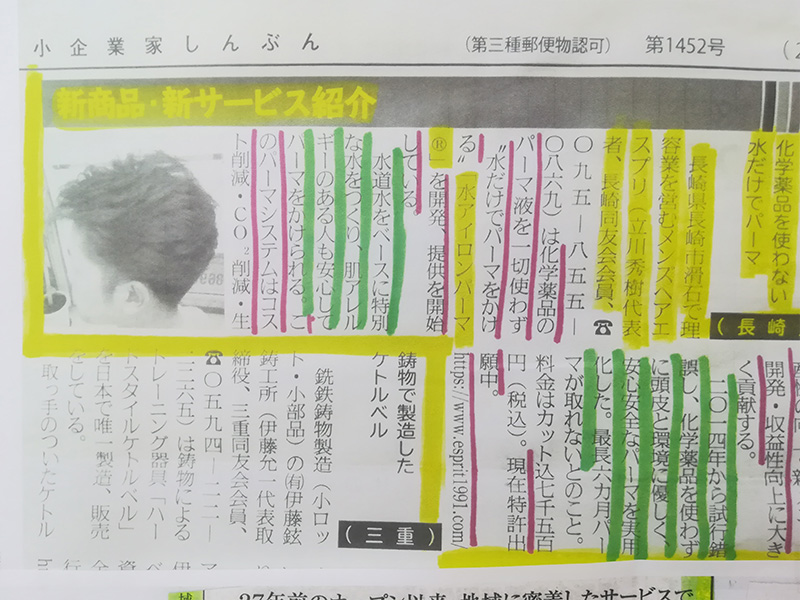 小企業家しんぶん
(第三種郵便物認可)
第1452号
(2
新商品・新サービス紹介
化学薬品を使わない
水だけでパーマ
(長崎
長崎県長崎市滑石で理
容業を営むメンズヘアエ
スプリ(立川秀樹代表
者、長崎同友会会員、☎
〇九五―八五五―
〇八六九)は化学薬品の
パーマ液を一切使わず
〝水だけでパーマをかけ
る〟「水アイロンパーマ
®」を開発、提供を開始
している。
水道水をベースに特別
な水をつくり、肌アレル
ギーのある人も安心して
パーマをかけられる。こ
のパーマシステムはコス
ト削減・CO2削減・生
開発・収益性向上に大き
く貢献する。
二〇一四年から試行錯
誤し、化学薬品を使わず
に頭皮と環境に優しく、
安心安全なパーマを実用
化した。最長六カ月パー
マが取れないとのこと。
料金はカット込七千五百
円(税込)。現在特許出
願中。
https://www.esprit1991.com/
(三重)
鋳物で製造した
ケトルベル
銑鉄鋳物製造(小ロッ
ト・小部品)の㈲伊藤鉉
鋳工所(伊藤允一代表取
締役、三重同友会会員、
☎〇五九四―二二―
六五)は鋳物による
トレーニング器具「ハー
ドスタイルケトルベル」
を日本で唯一製造、販売
をしている。
取っ手のついたケトル
27年前のオープン以来、地域に密着したサービスで